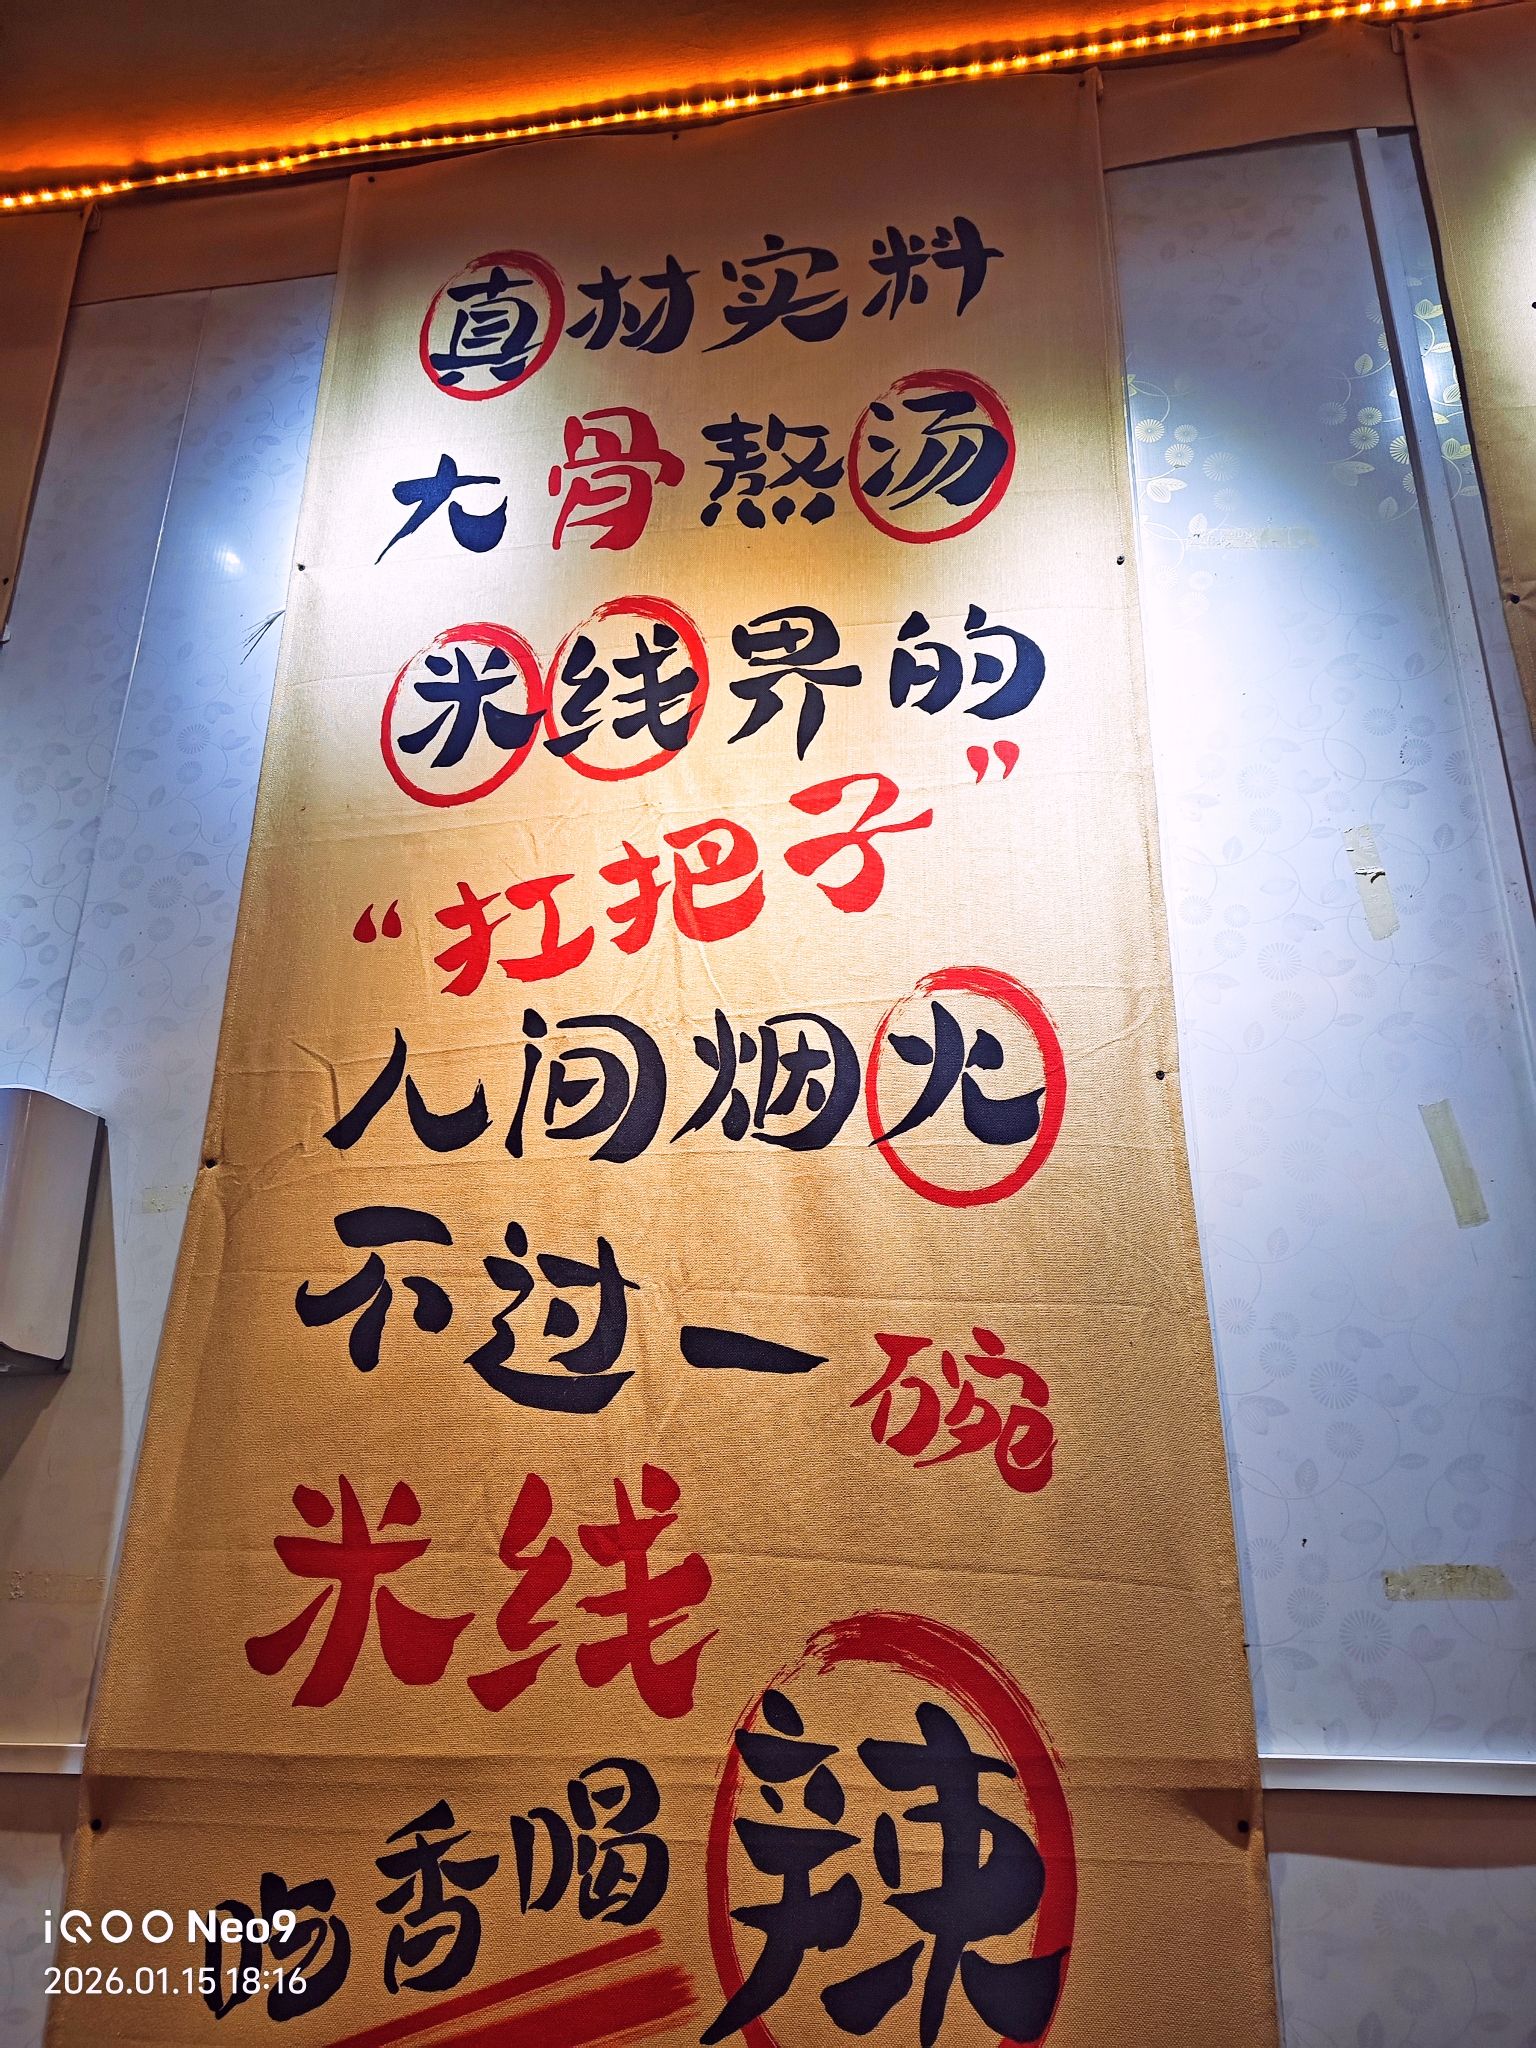 真材实料
大骨熬汤
米线界的
“扛把子”
人间烟火
不过一碗
米线
吃香喝辣
iQOO Neo9
2026.01.15 18:16